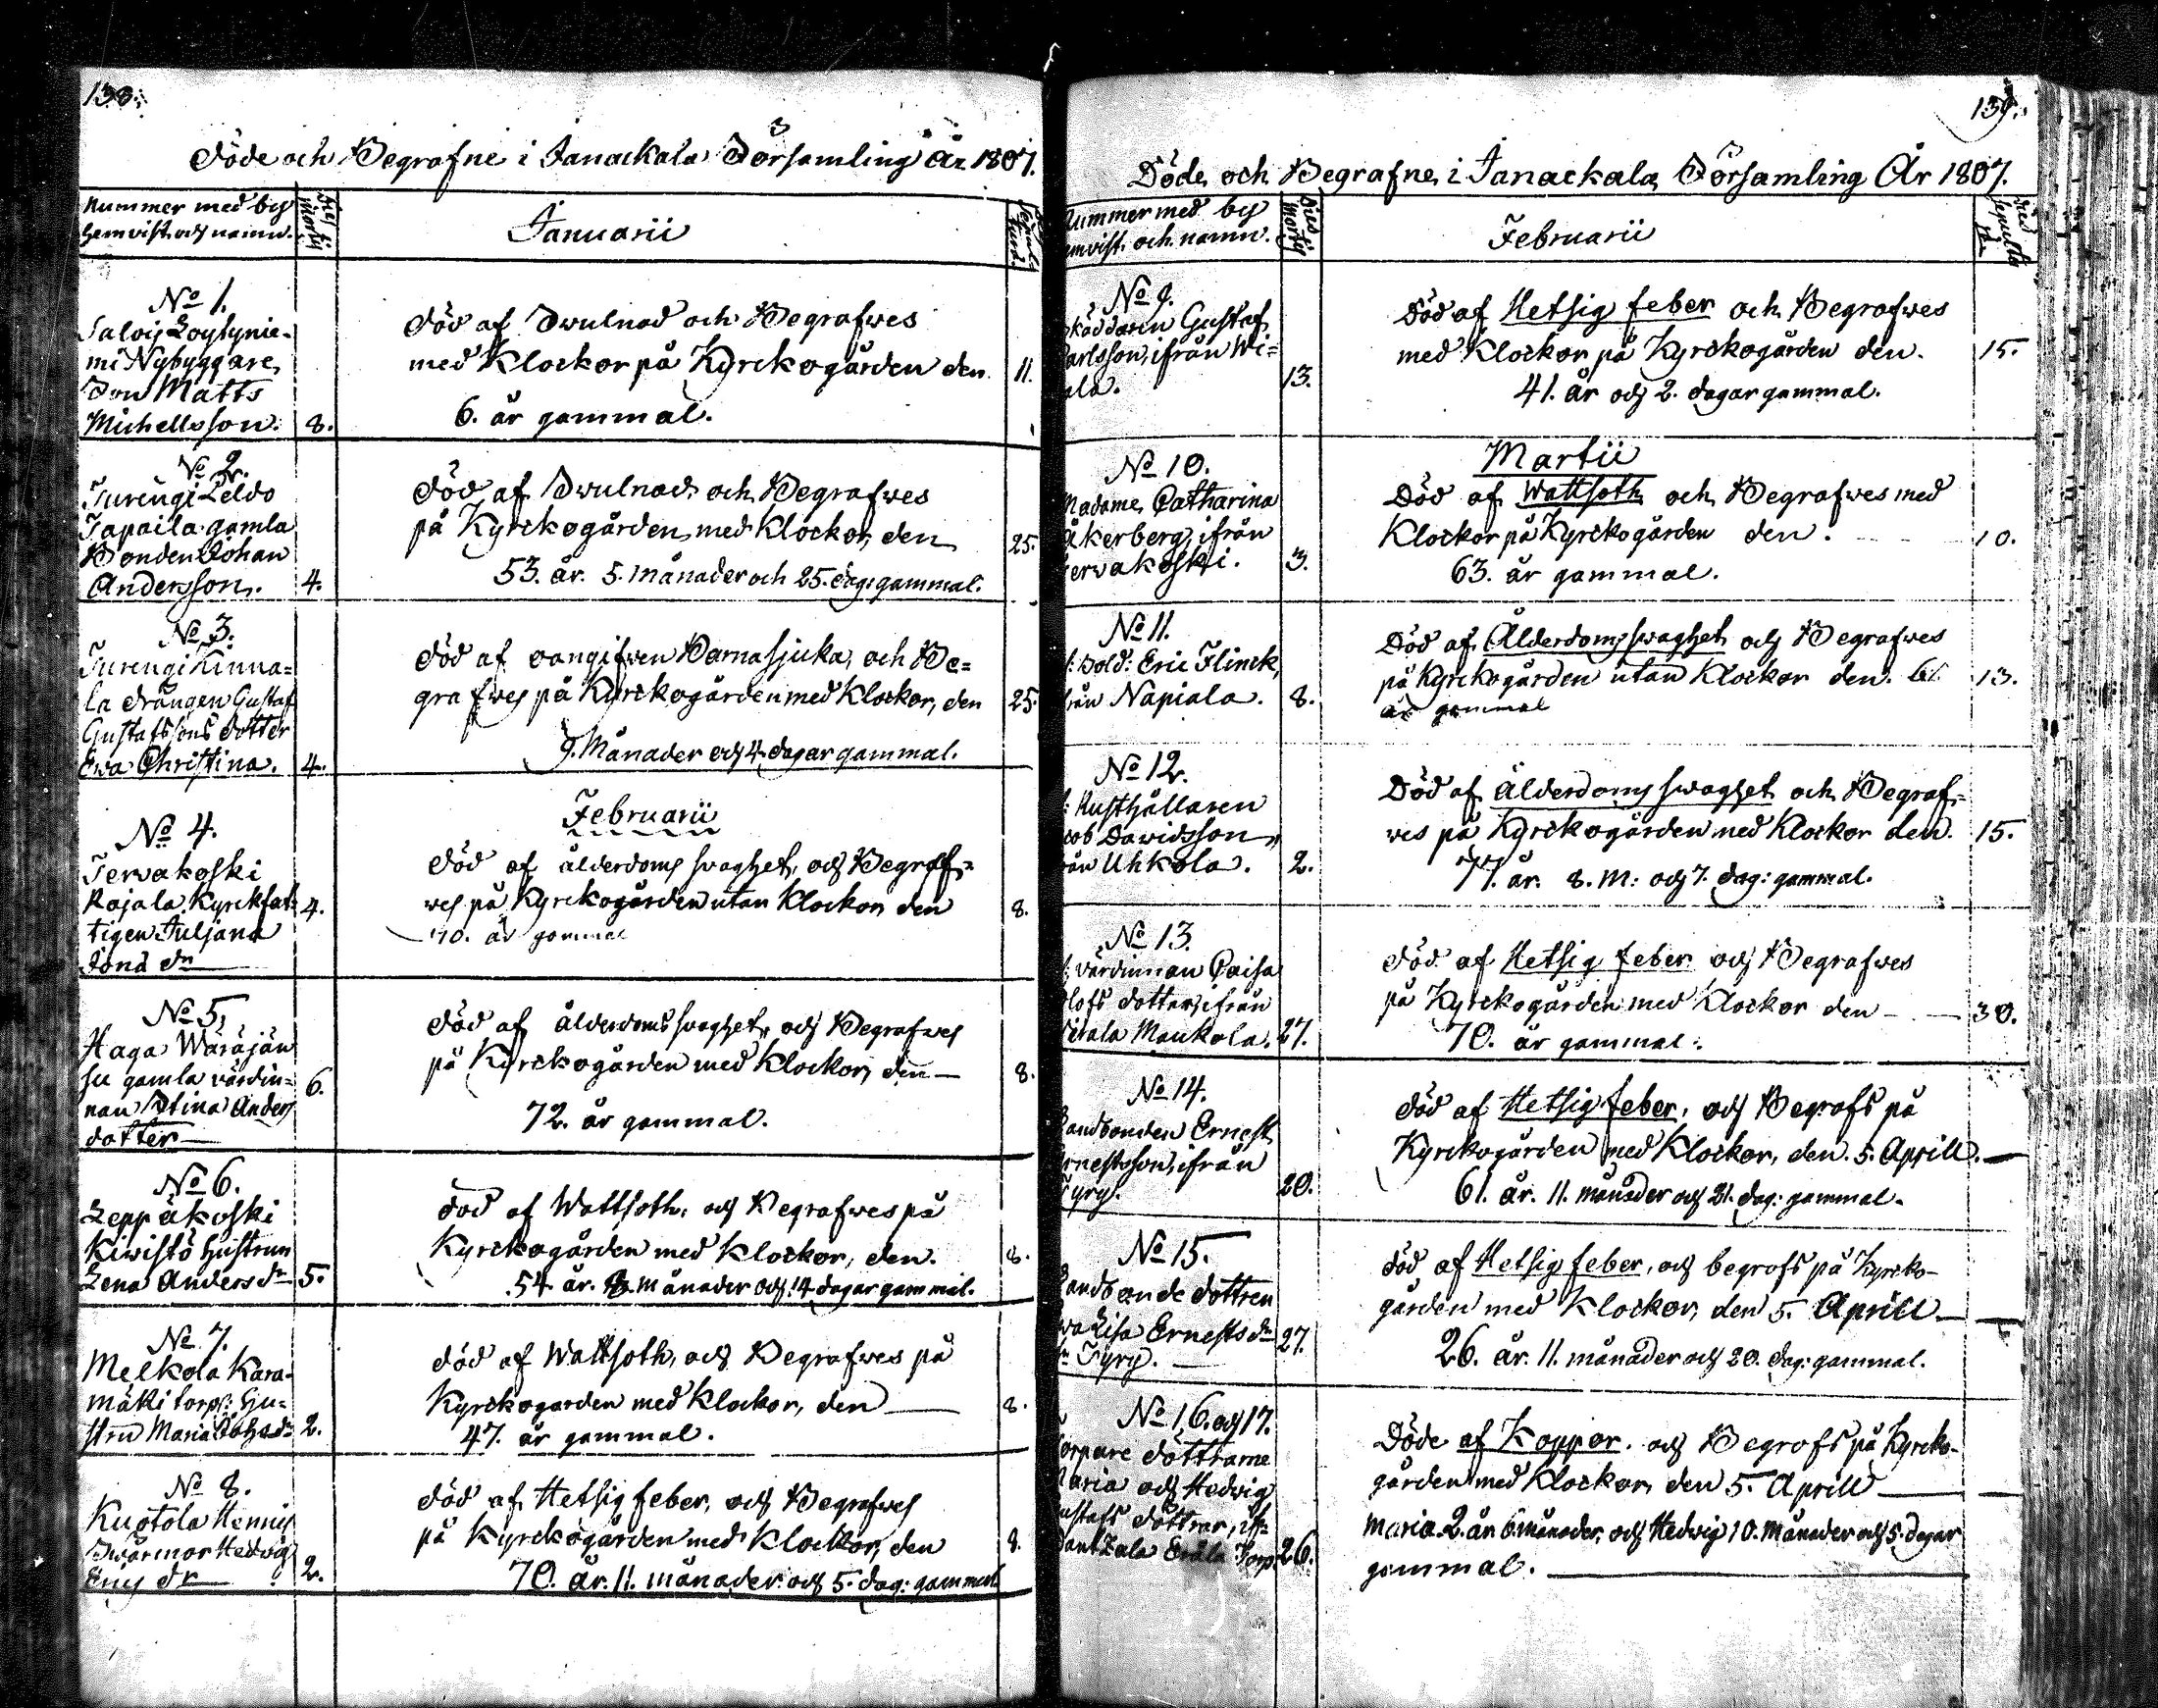 138.
Döde och Begrafne i Janackala Församling År 1807.
Nummer med by
hemvist och namn.
Dies
mortis
Januarii
No 1.
Salois Löytynie-
mi Nybyggare
Son Matts
Michellsson.
8.
Död af Swulnad och Begrafwes
med Klockor på Kyrckogården den
11.
6. år gammal.
No 2.
Turengi Leldo
Tapaila gamla
Bonden Johan
Andersson.
4.
Död af Swulnad och Begrafwes
på Kyrckogården med Klockor, den
25.
53. år. 5. månader och 25. dag: gammal.
No 3.
Turengi Kinna-
la drängen Gustaf
Gustafssons dotter
Ewa Christina.
4.
Död af oangifwen Barnasjuka, och Be-
grafwes på Kyrckogården med Klockor, den
25.
9. Månader och 4. dagar gammal.
Februarii
No 4.
Terwakoski
Rajala Kyrckfat-
tigen Juljana
Jona dr
4.
Död af ålderdoms swaghet, och Begraf-
wes på Kyrckogården utan Klockor, den
8.
70. år gammal
No 5.
Haga Wäräjän
su gamla värdin-
nan Stina Anders
dotter
6.
Död af ålderdoms swaghet, och Begrafwes
på Kyrckogården med Klockor, den
8.
72. år gammal.
No 6.
Leppäkoski
Kiwistö Hustrun
Lena Anders dr
5.
död af Wattsoth, och Begrafwes på
Kyrckogården med Klockor, den.
8.
54. år. månader och 14 dagar gammal.
No 7.
Melkola Kara-
mäki torp: Hu-
stru Maria Johs dr
2.
död af Wattsoth, och Begrafwes på
Kyrckogarden med Klockor, den
8.
47. år gammal.
No 8.
Kuotola Hennis
Swärmor Hedvig
Erics dr
2.
död af Hetsig feber, och Begrafwes
på Kyrckogården med Klockor, den
8.
70. år. 11. månader och 5. dag: gammal
139.
Döde och Begrafne i Janackala Församling År 1807.
Nummer med by
emvist. och namn.
Dies
mortis
Februarii
Dies
sepultu
ræ
No 9.
kräddaren Gustaf
Carlsson, ifrån Wi-
ala.
13.
Död af Hetsig feber och Begrafwes
med Klockor på Kyrckogården den.
15.
41. år och 2. dagar gammal.
Martii
No 10.
Madame Catharina
Åkerberg, ifrån
Terwakoski.
3.
Död af Wattsoth och Begrafwes med
Klockor på Kyrckogården den.
10.
63. år gammal.
No 11.
f: Sold: Eric Flinck,
från Napiala.
8.
Död af Ålderdoms swaghet och Begrafwes
på Kyrckogården utan Klockor den. 61.
13.
år gammal
No 12.
f: Rusthållaren
cob Davidsson,
från Uhkola.
2.
Död af Ålderdoms swaghet och Begraf-
wes på Kyrckogården med Klockor den.
15.
77. år. 8. M: och 7. dag: gammal.
No 13.
f: värdinnan Caisa
Olofs dotter, ifrån
Maukola.
27.
död af Hetsig feber och Begrafwes
på Kyrckogården med Klockor den
30.
70. år gammal.
No 14.
Landbonden Ernest
Ernestsson, ifrån
Tyry.
20.
död af Hetsig feber, och Begrofs på
Kyrckogården med Klockor, den. 5. Aprill.
61. år. 11. månader och 21. dag: gammal.
No 15.
Landbonde dottren
Ewa Lisa Ernests dr
fn Tyry.
27.
död af Hetsig feber, och begrofs på Kyrcko-
gården med Klockor, den 5. Aprill
26. år. 11. månader och 20. dag: gammal.
No 16. och 17.
Torpare döttrarne
Maria och Hedvig
Gustafs döttrar,
Eräla Torp.
26.
Döde af Koppor. och Begrofs på Kyrcko-
gården med Klockor, den 5. Aprill
Maria. 2. år. 6. månader, och Hedvig 10. Månader och 5. Dagar
gammal.